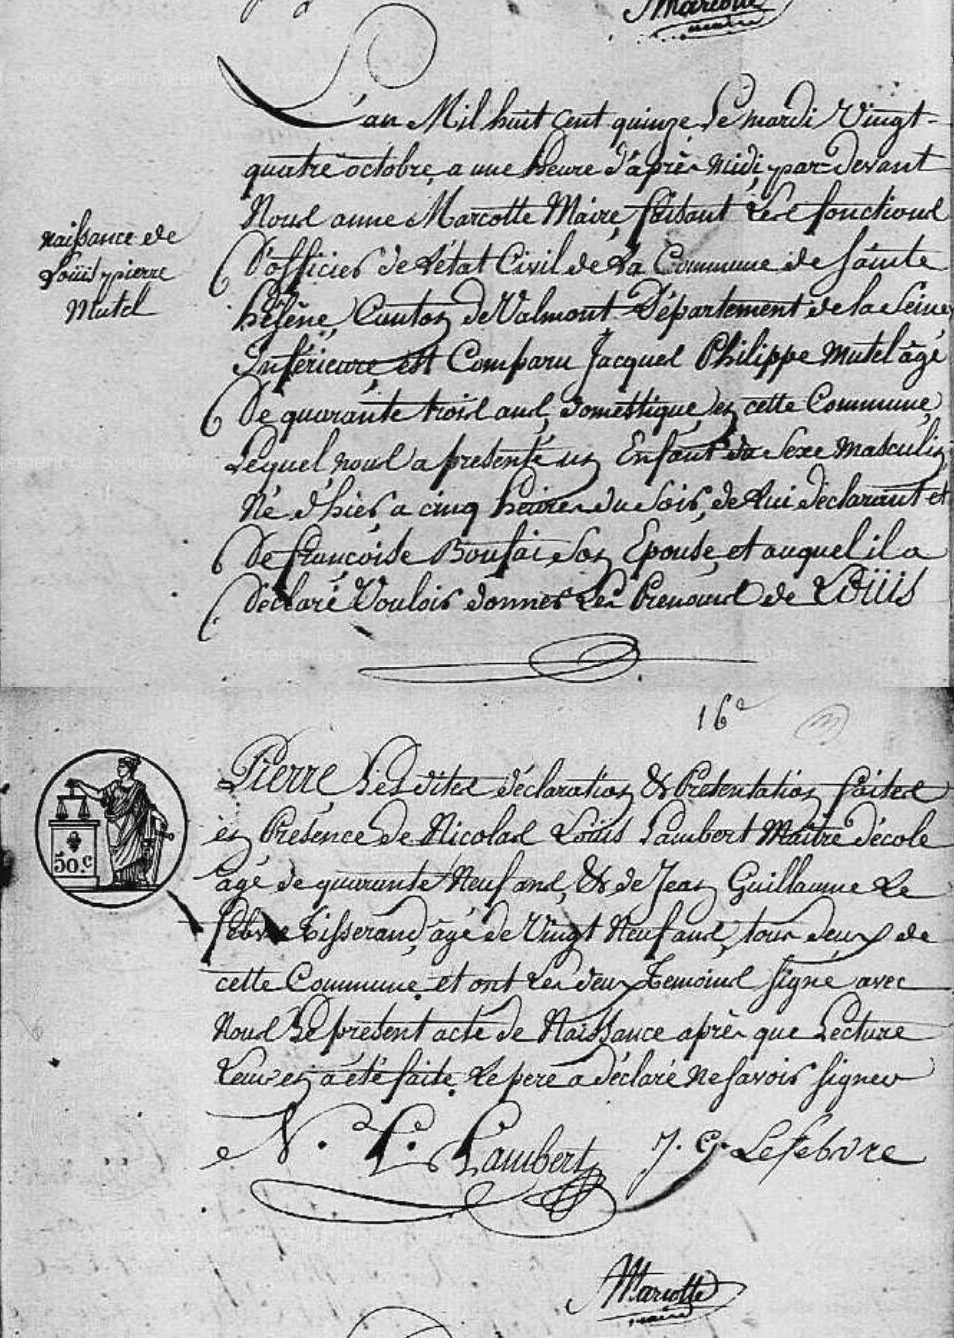 Marcotte
maire
L'an Mil huit Cent quinze Le mardi Vingt-
quatre octobre, a une heure d'après Midi, par-devant
Nous anne Marcotte Maire, faisant Les fonctions
D'officier de L'état Civil de La Commune de Sainte
hélène, Canton de Valmont Département de la Seine
Inférieure est Comparu Jacques Philippe Mutel âgé
De quarante trois ans, domestique en cette Commune,
Lequel nous a présenté un Enfant du Sexe Masculin,
Né d'hier a cinq heures du Soir, de Lui déclarant et
De françoise Boufai Son Epouse, et auquel il a
Déclaré Vouloir donner Les Prenoms de Loüis
naissance de
Loüis pierre
Mutel
16e
Pierre Les dites déclaration & Présentation faites
en Présence de Nicolas Loüis Lambert Maitre d'école
âgé de quarante Neuf ans, & de Jean Guillaume Le
febvre Tisserand âgé de Vingt Neuf ans, tous deux de
cette Commune, et ont Les deux Temoins Signé avec
Nous Le présent acte de Naissance après que Lecture
Leur en a été faite. Le pere a déclaré Ne Savoir Signer
50.c
N. L. Lambert J. G. Lefebvre
Marcotte
maire